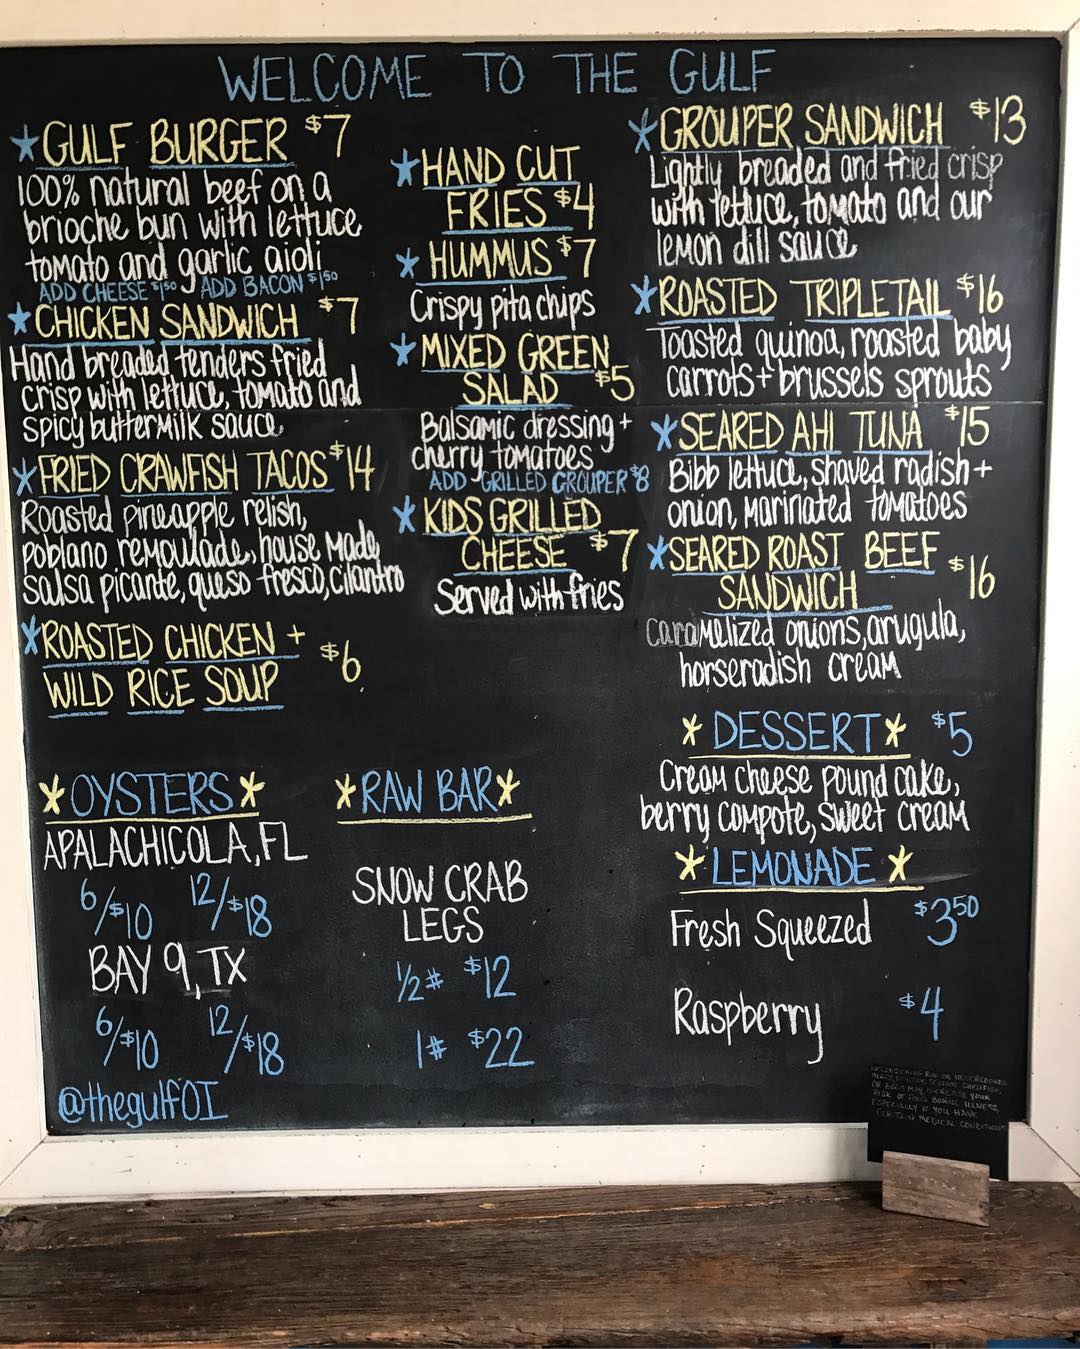 WELCOME TO THE GULF
GULF BURGER $7
100% natural beef on a
brioche bun with lettuce
tomato and garlic aioli
ADD CHEESE $1.50 ADD BACON $1.50
CHICKEN SANDWICH $7
Hand breaded tenders fried
crisp with lettuce, tomato and
spicy buttermilk sauce
FRIED CRAWFISH TACOS $14
Roasted pineapple relish,
poblano remoulade, house made
salsa picante, queso fresco, cilantro
ROASTED CHICKEN +
WILD RICE SOUP $6
HAND CUT
FRIES $4
HUMMUS $7
Crispy pita chips
MIXED GREEN
SALAD $5
Balsamic dressing +
cherry tomatoes
ADD GRILLED GROUPER $8
KIDS GRILLED
CHEESE $7
Served with fries
GROUPER SANDWICH $13
Lightly breaded and fried crisp
with lettuce, tomato and our
lemon dill sauce
ROASTED TRIPLETAIL $16
Toasted quinoa, roasted baby
carrots + brussels sprouts
SEARED AHI TUNA $15
Bibb lettuce, shaved radish +
onion, marinated tomatoes
SEARED ROAST BEEF
SANDWICH $16
caramelized onions, arugula,
horseradish cream
*OYSTERS*
APALACHICOLA, FL
6/$10 12/$18
BAY 9, TX
6/$10 12/$18
@thegulfOI
*RAW BAR*
SNOW CRAB
LEGS
1/2# $12
1# $22
*DESSERT* $5
Cream cheese pound cake,
berry compote, sweet cream
*LEMONADE*
Fresh Squeezed $3.50
Raspberry $4
CONSUMING RAW OR UNDERCOOKED
MEATS, POULTRY, SEAFOOD, SHELLFISH,
OR EGGS MAY INCREASE YOUR
RISK OF FOOD BORNE ILLNESS,
ESPECIALLY IF YOU HAVE
CERTAIN MEDICAL CONDITIONS